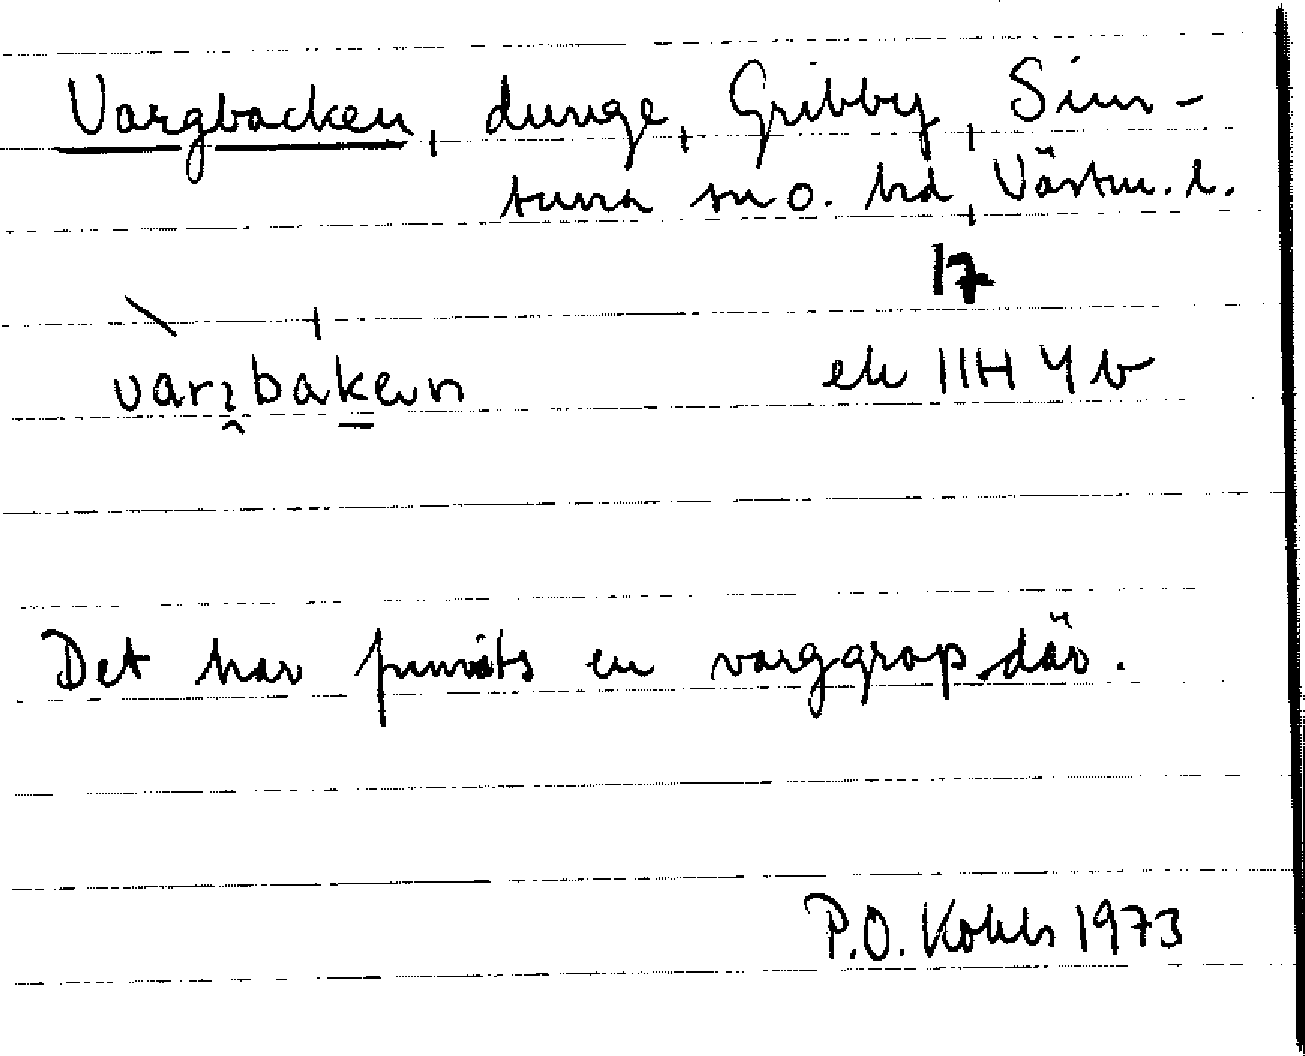 Vargbacken, dunge, Gribby, Sim-
tuna sn o. hd, Västm. l.
17
varɿbaken
ek 11H 4b
Det har funnits en varggrop där.
P.O. Kohls 1973